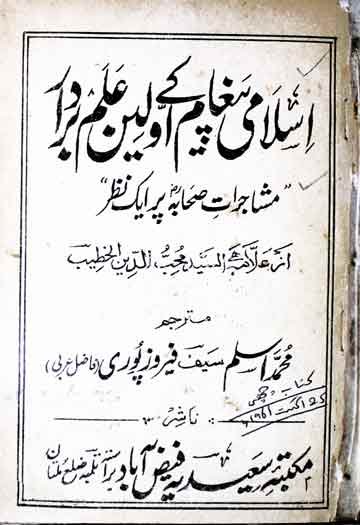 اسلامی پیغام کے اولین علم بردار
"مشاجراتِ صحابہؓ پر ایک نظر"
از علامہ السید محب الدین الخطیب
مترجم
محمد اسلم سیف فیروزپوری (فاضل عربی)
کتاب
25 اگست
ناشر
مکتبہ سعیدیہ فیض آباد براستہ تلمبہ ضلع ملتان